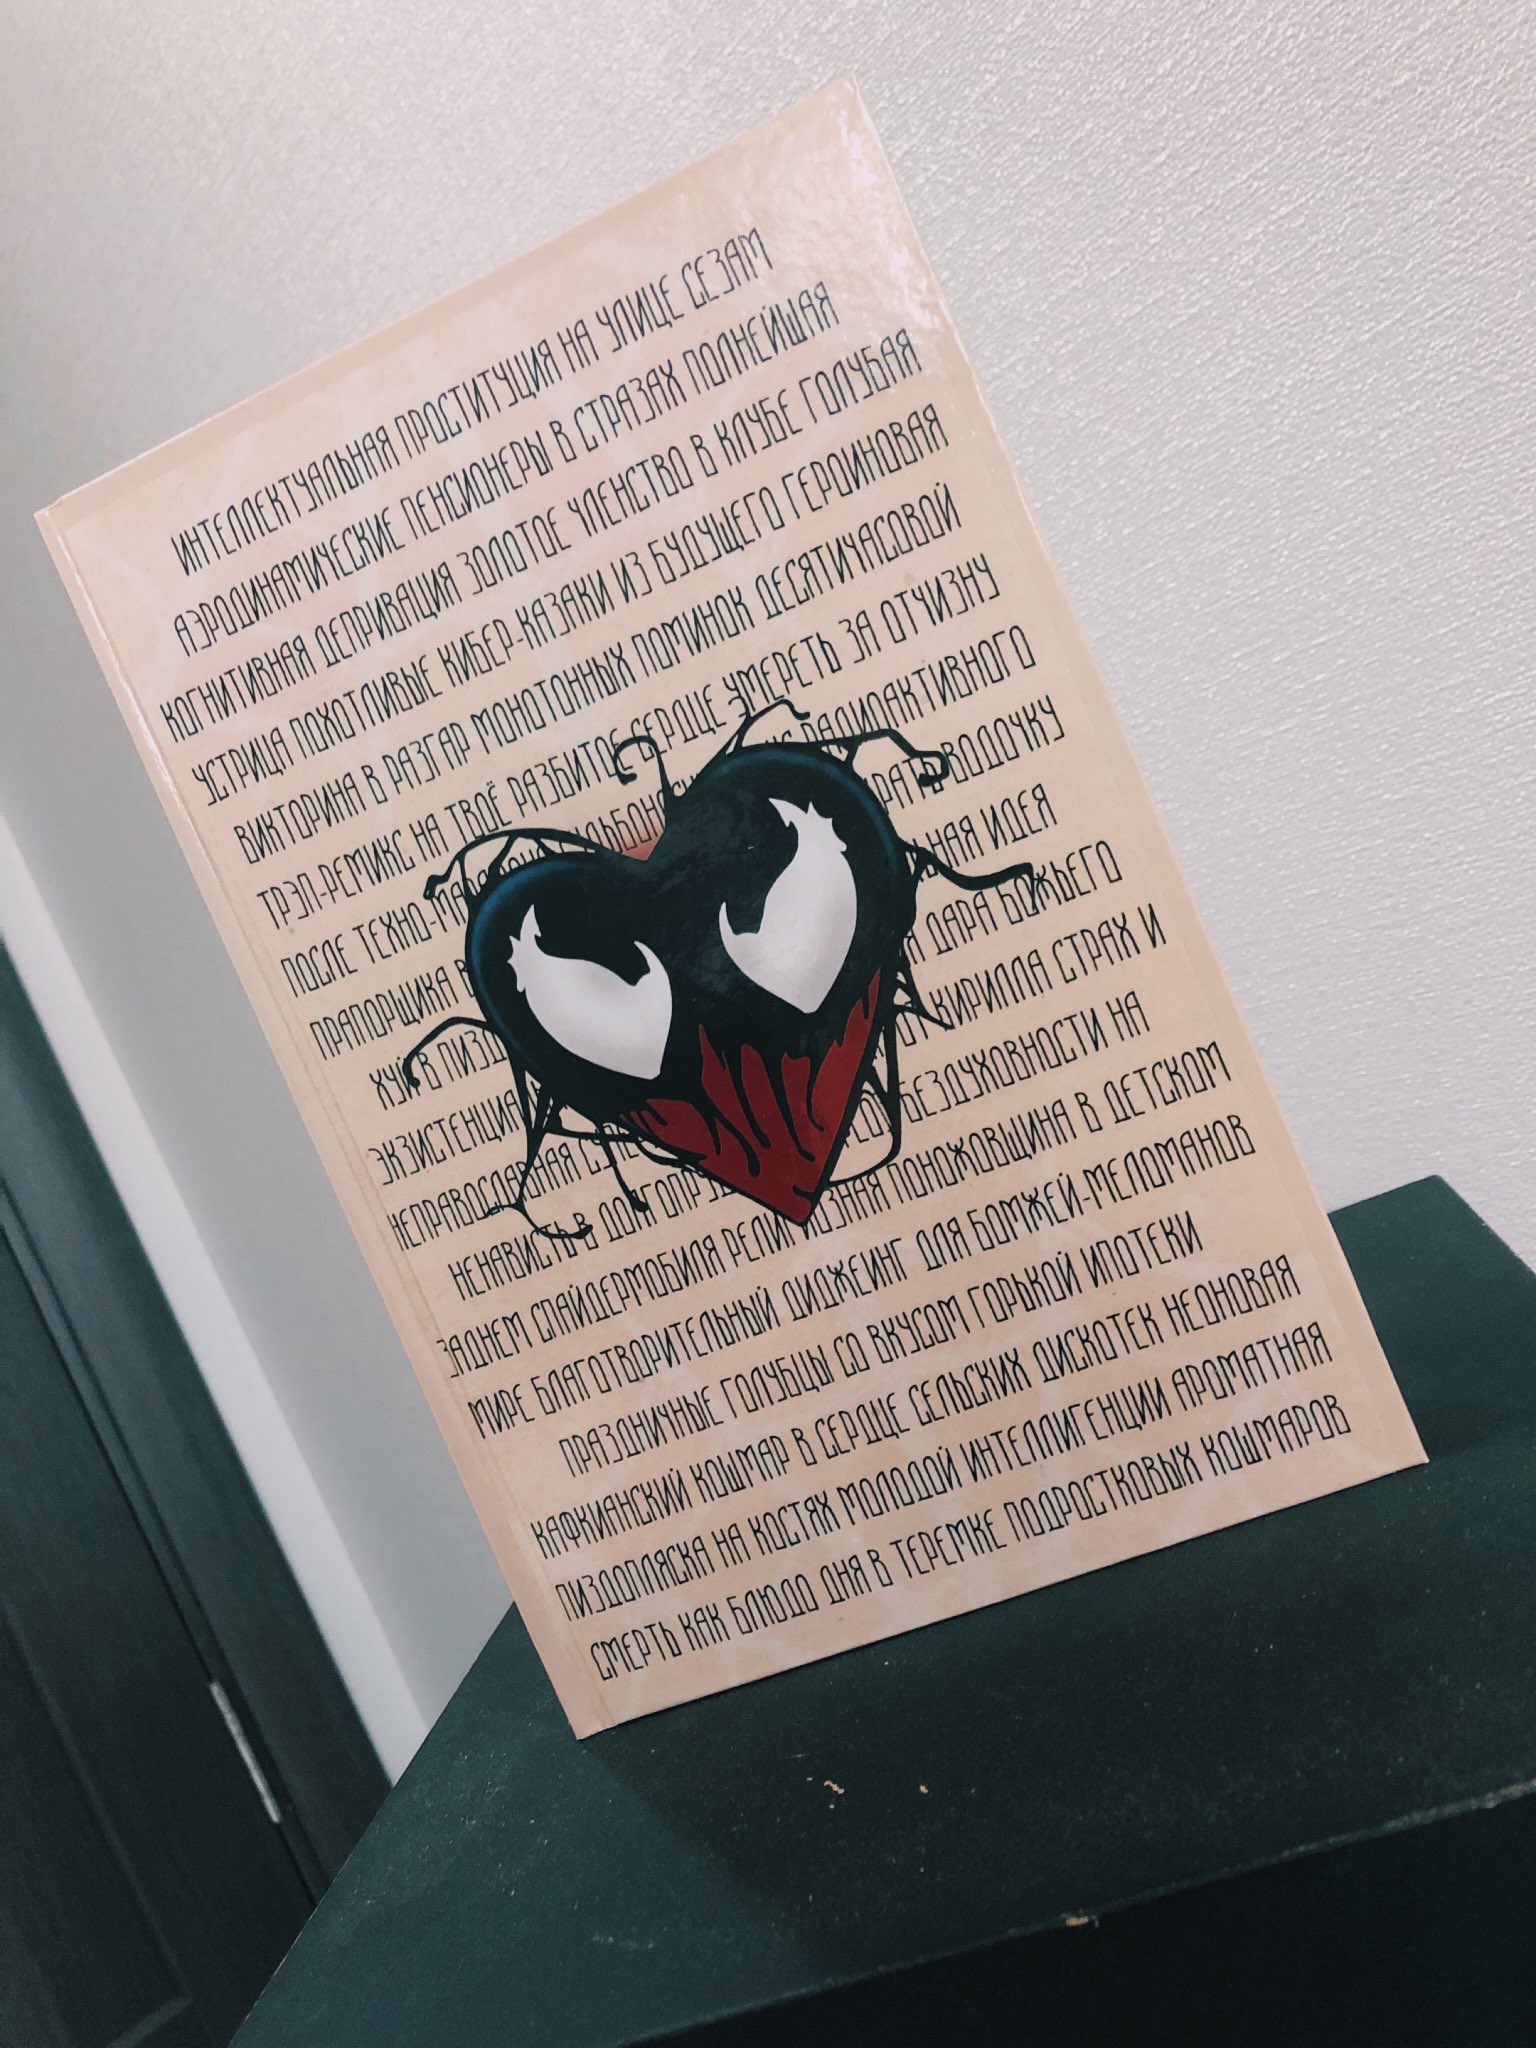 ИНТЕЛЛЕКТУАЛЬНАЯ ПРОСТИТУЦИЯ НА УЛИЦЕ СЕЗАМ
АЭРОДИНАМИЧЕСКИЕ ПЕНСИОНЕРЫ В СТРАЗАХ ПОЛНЕЙШАЯ
КОГНИТИВНАЯ ДЕПРИВАЦИЯ ЗОЛОТОЕ ЧЛЕНСТВО В КЛУБЕ ГОЛУБАЯ
УСТРИЦА ПОХОТЛИВЫЕ КИБЕР-КАЗАКИ ИЗ БУДУЩЕГО ГЕРОИНОВАЯ
ВИКТОРИНА В РАЗГАР МОНОТОННЫХ ПОМИНОК ДЕСЯТИЧАСОВОЙ
ТРЭП-РЕМИКС НА ТВОЁ РАЗБИТОЕ СЕРДЦЕ УМЕРЕТЬ ЗА ОТЧИЗНУ
ПОСЛЕ ТЕХНО- РАДИОАКТИВНОГО
ПРАПОРЩИКА В ВОДОЧКУ
ХУЙ В ИДЕЯ
ДАРА БОЖЬЕГО
НЕПРАВОСЛАВНАЯ ОТ КИРИЛЛА СТРАХ И
НЕНАВИСТЬ В БЕЗДУХОВНОСТИ НА
ЗАДНЕМ СПАЙДЕРМОБИЛЯ РЕЛИГИОЗНАЯ ПОНОЖОВЩИНА В ДЕТСКОМ
МИРЕ БЛАГОТВОРИТЕЛЬНЫЙ ДИДЖЕИНГ ДЛЯ БОМЖЕЙ-МЕЛОМАНОВ
ПРАЗДНИЧНЫЕ ГОЛУБЦЫ СО ВКУСОМ ГОРЬКОЙ ИПОТЕКИ
КАФКИАНСКИЙ КОШМАР В СЕРДЦЕ СЕЛЬСКИХ ДИСКОТЕК НЕОНОВАЯ
ПИЗДОПЛЯСКА НА КОСТЯХ МОЛОДОЙ ИНТЕЛЛИГЕНЦИИ АРОМАТНАЯ
СМЕРТЬ КАК БЛЮДО ДНЯ В ТЕРЕМКЕ ПОДРОСТКОВЫХ КОШМАРОВ